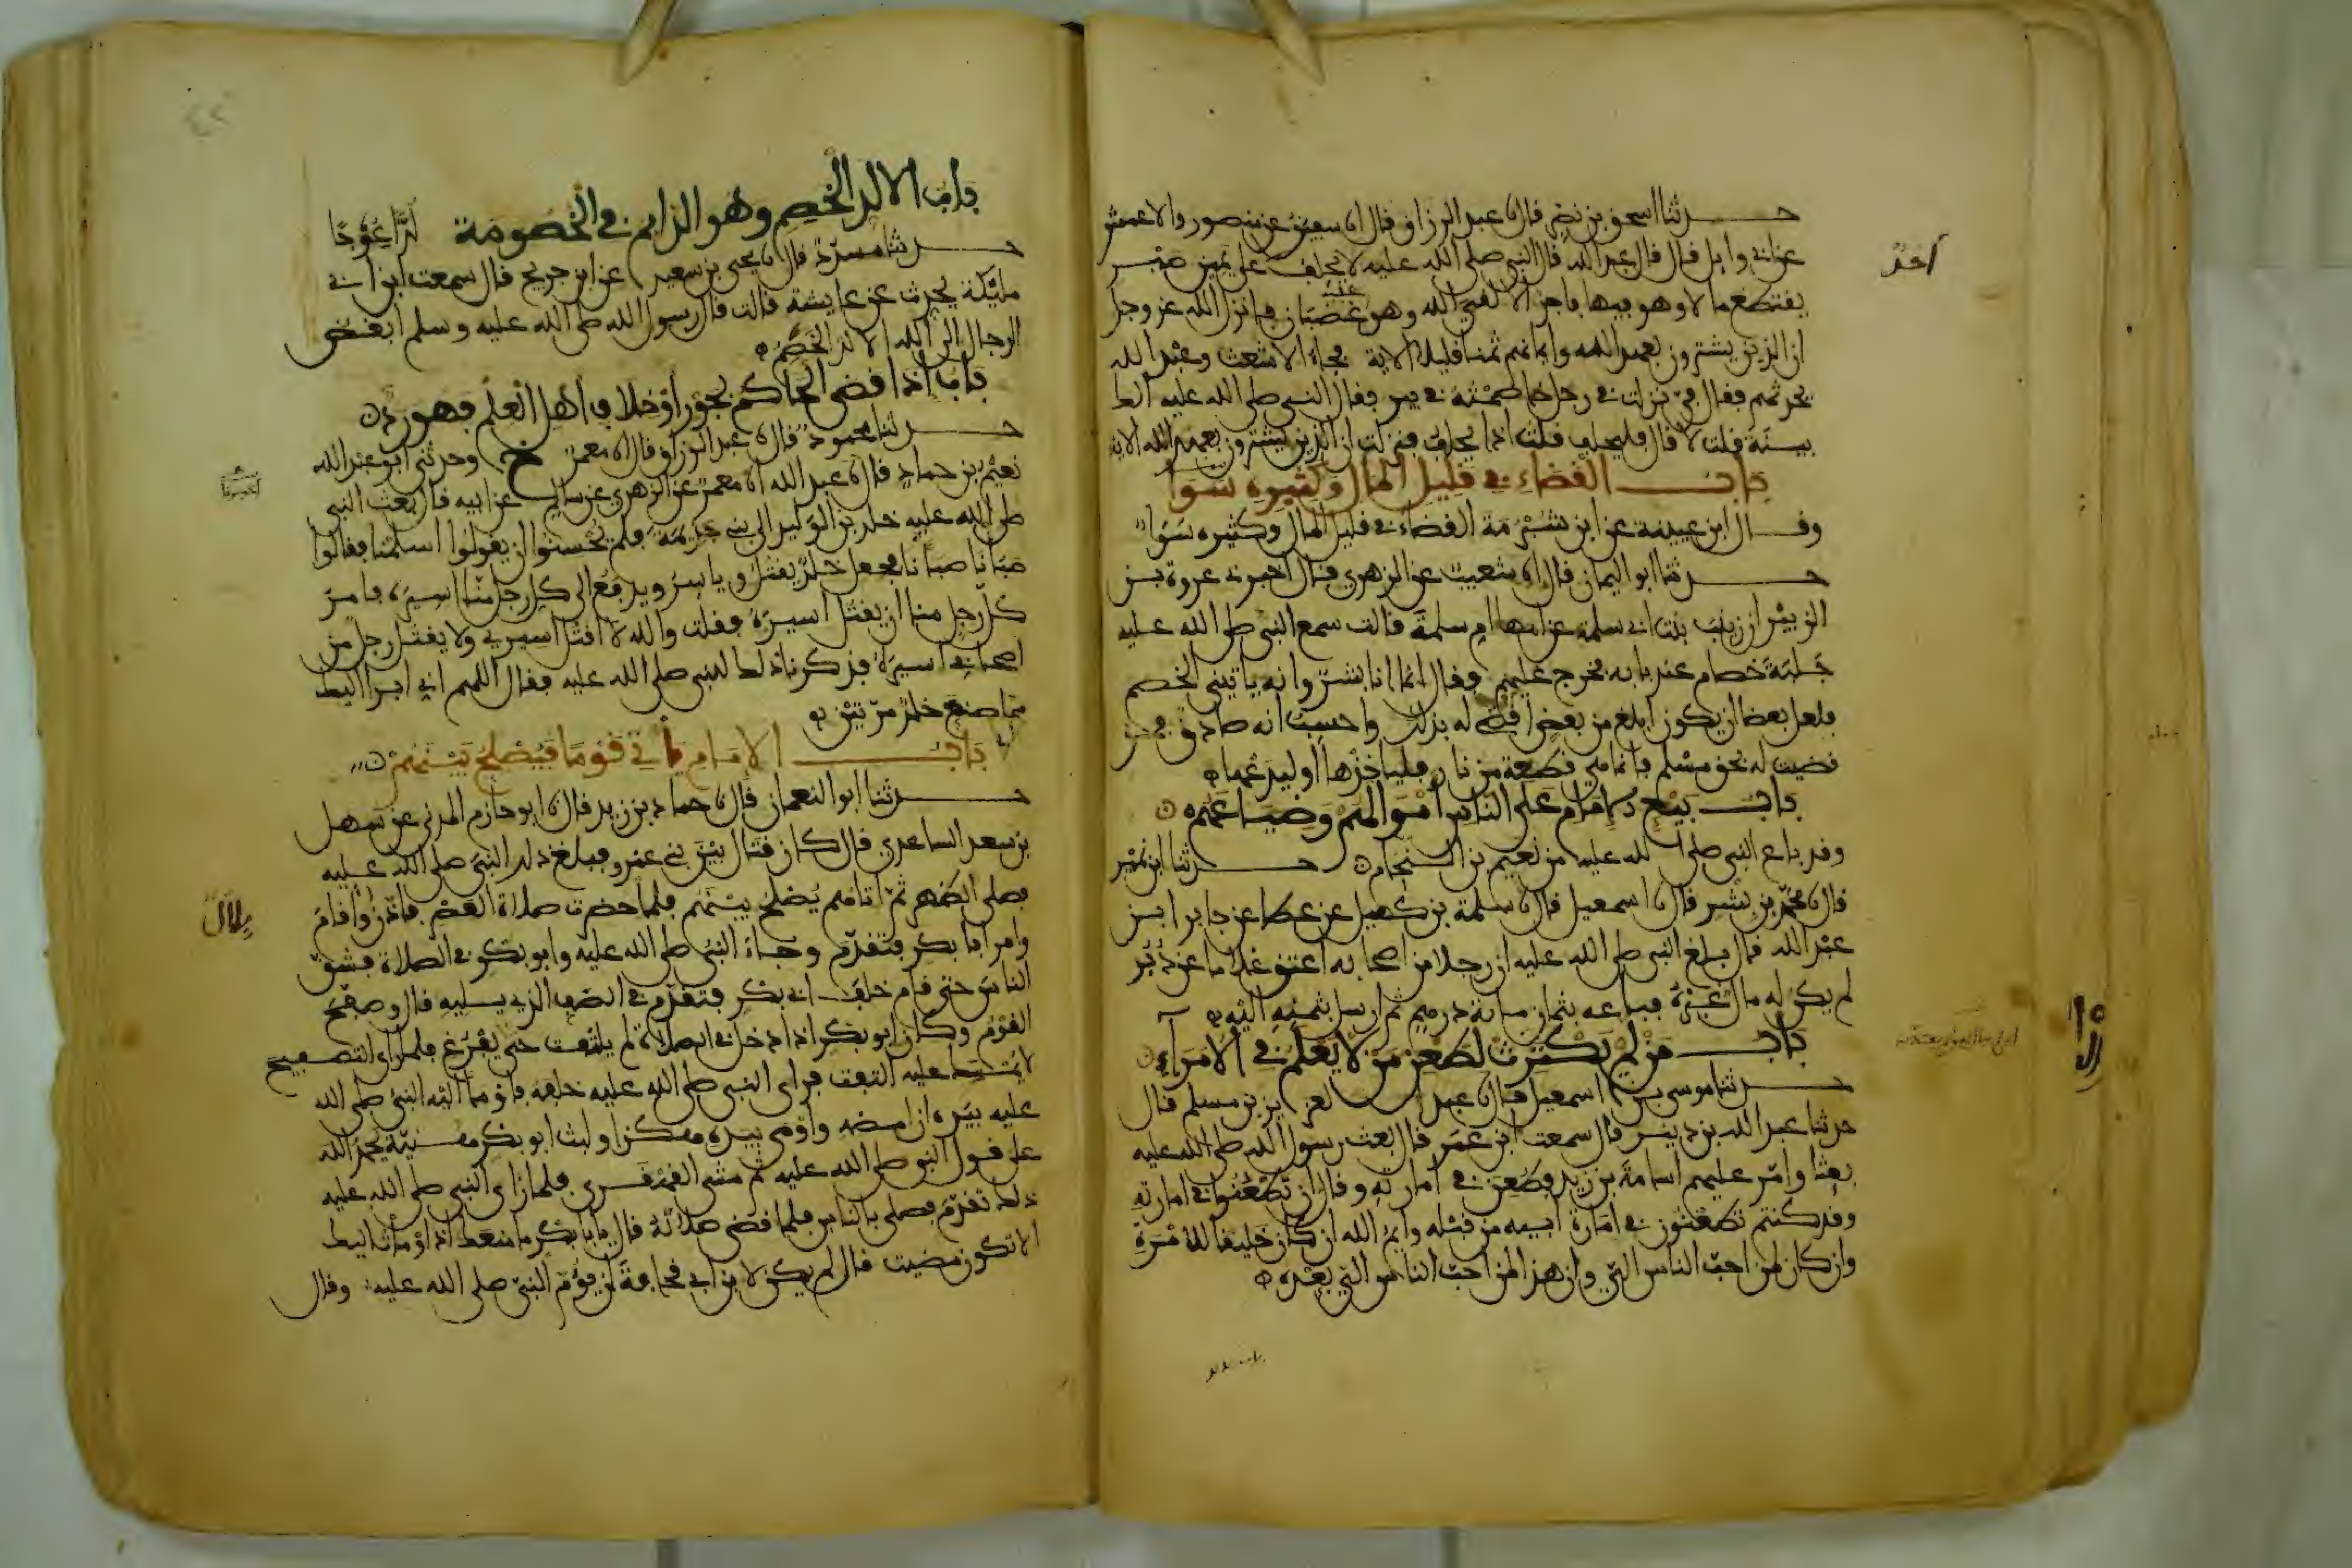 حدثنا اسحق بن نصر قال نا عبد الرزاق قال انا سفين عن منصور والاعمش
عن ابي وايل قال قال عبد الله قال النبي صلى الله عليه لا يحلف على يمين صبر
يقتطع مالا وهو فيها فاجر الا لقي الله وهو عليه غضبان فانزل الله عز وجل
ان الذين يشترون بعهد الله وايمانهم ثمنا قليلا الاية فجاء الاشعث وعبد الله
يحدثهم فقال في نزلت في رجل خاصمته في بير فقال النبي صلى الله عليه الك
بينة قلت لا قال فليحلف قلت اذا يحلف فنزلت ان الذين يشترون بعهد الله الاية
باب القضاء في قليل المال وكثيره سوا
وقال ابن عيينة عن ابن شبرمة القضاء في قليل المال وكثيره سوا
حدثنا ابو اليمان قال انا شعيب عن الزهري قال اخبرني عروة بن
الزبير ان زينب بنت ابي سلمة عن امها ام سلمة قالت سمع النبي صلى الله عليه
جلبة خصام عند بابه فخرج عليهم فقال انما انا بشر وانه ياتيني الخصم
فلعل بعضا ان يكون ابلغ من بعض اقضي له بذلك واحسب انه صادق فمن
قضيت له بحق مسلم فانما هي قطعة من نار فلياخذها او ليدعها
باب بيع الامام على الناس اموالهم وضياعهم
وقد باع النبي صلى الله عليه من نعيم بن النحام حدثنا ابن نمير
قال نا محمد بن بشر قال نا اسمعيل قال نا سلمة بن كهيل عن عطا عن جابر بن
عبد الله قال بلغ النبي صلى الله عليه ان رجلا من اصحابه اعتق غلاما عن دبر
لم يكن له مال غيره فباعه بثمان ماية درهم ثم ارسل بثمنه اليه
باب من لم يكترث لطعن من لا يعلم في الامراء
حدثنا موسى بن اسمعيل قال نا عبد العزيز بن مسلم قال
حدثنا عبد الله بن دينر قال سمعت ابن عمر قال بعث رسول الله صلى الله عليه
بعثا وامر عليهم اسامة بن زيد فطعن في امارته وقال ان تطعنوا في امارته
وقد كنتم تطعنون في امارة ابيه من قبله وايم الله ان كان لخليقا للامرة
وان كان لمن احب الناس الي وان هذا لمن احب الناس الي بعده
باب الالد الخصم وهو الدايم في الخصومة لدا عوجا
حدثنا مسدد قال نا يحيى بن سعيد عن ابن جريج قال سمعت ابن ابي
مليكة يحدث عن عايشة قالت قال رسول الله صلى الله عليه وسلم ابغض
الرجال الى الله الالد الخصم
باب اذا قضى الحاكم بجور او خلاف اهل العلم فهو رد
حدثنا محمود قال نا عبد الرزاق قال انا معمر ح وحدثني ابو عبد الله
نعيم بن حماد قال نا عبد الله انا معمر عن الزهري عن سالم عن ابيه قال بعث النبي
صلى الله عليه خلد بن الوليد الى بني جذيمة فلم يحسنوا ان يقولوا اسلمنا فقالوا
صبانا صبانا فجعل خلد يقتل وياسر ويدفع الى كل رجل منا اسيره فامر
كل رجل منا ان يقتل اسيره فقلت والله لا اقتل اسيري ولا يقتل رجل من
اصحابي اسيره فذكرنا ذلك للنبي صلى الله عليه فقال اللهم اني ابرا اليك
مما صنع خلد مرتين
باب الامام ياتي قوما فيصلح بينهم
حدثنا ابو النعمان قال نا حماد بن زيد قال نا ابو حازم المدني عن سهل
بن سعد الساعدي قال كان قتال بين بني عمرو فبلغ ذلك النبي صلى الله عليه
فصلى الظهر ثم اتاهم يصلح بينهم فلما حضرت صلاة العصر فاذن واقام
بلال
وامر ابا بكر فتقدم وجاء النبي صلى الله عليه وابو بكر في الصلاة فشق
الناس حتى قام خلف ابي بكر فتقدم في الصف الذي يليه قال وصفح
القوم وكان ابو بكر اذا دخل في الصلاة لم يلتفت حتى يفرغ فلما راى التصفيح
لا يمسك عليه التفت فراى النبي صلى الله عليه خلفه فاومأ اليه النبي صلى الله
عليه بيده ان امضه واومى بيده هكذا ولبث ابو بكر هنية يحمد الله
على قول النبي صلى الله عليه ثم مشى القهقرى فلما راى النبي صلى الله عليه
ذلك تقدم فصلى بالناس فلما قضى صلاته قال يابا بكر ما منعك اذ اومأت اليك
الا تكون مضيت قال لم يكن لابن ابي قحافة ان يؤم النبي صلى الله عليه وقال